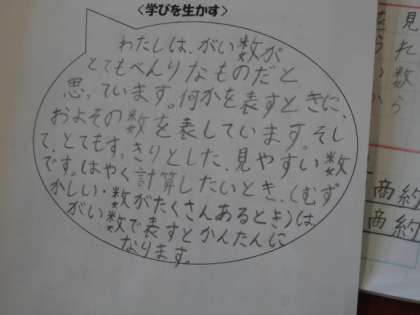 〈学びを生かす〉
わたしは、がい数が
とてもべんりなものだと
思っています。何かを表すときに、
およその数を表しています。そし
て、とてもすっきりとした、見やすい数
です。はやく計算したいとき、(むず
かしい・数がたくさんあるとき)は、
がい数で表すとかんたんに
なります。
見
れ
数
ら
商 約
商 約